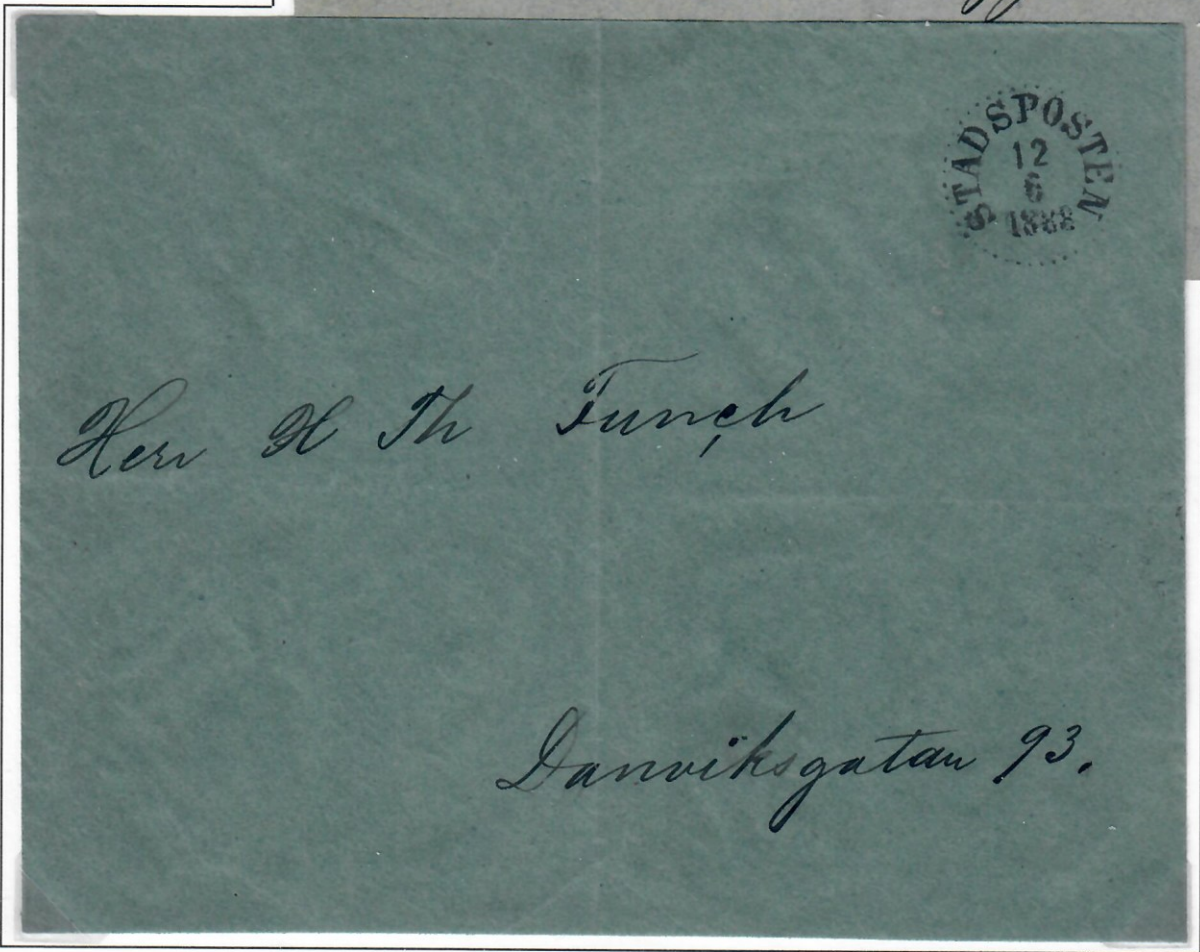 STADSPOSTEN
12
6
1888
Herr H Th Funch
Danviksgatan 93.